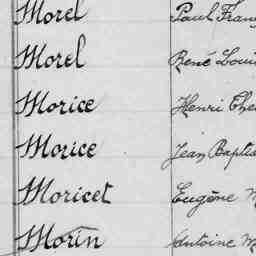 Morel Paul Fran
Morel René Loui
Morice Henri The
Morice Jean Baptis
Moricet Eugène M
Morin Antoine M